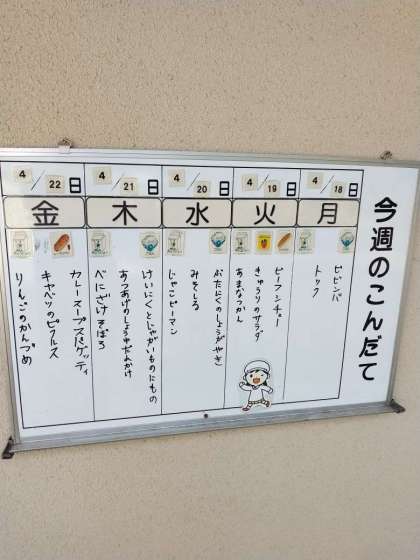 今週のこんだて
4/18日
月
ビビンバ
トック
4/19日
火
ビーフシチュー
きゅうりのサラダ
あまなつかん
4/20日
水
ぶたにくのしょうがやき
みそしる
じゃこピーマン
4/21日
木
けいにくとじゃがいものにもの
あつあげのしょうゆだれかけ
べにざけそぼろ
4/22日
金
カレースープスパゲッティ
キャベツのピクルス
りんごのかんづめ